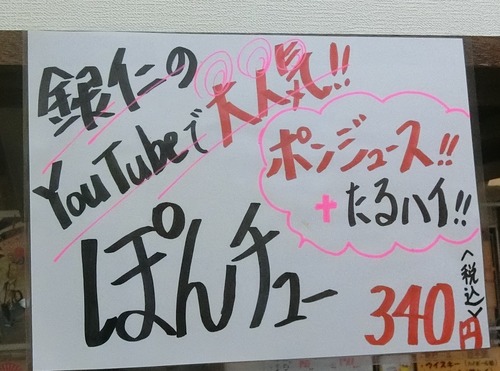 銀仁の
YouTubeで大人気!!
ポンジュース!!
+たるハイ!!
ぽんチュー
340円
<税込>